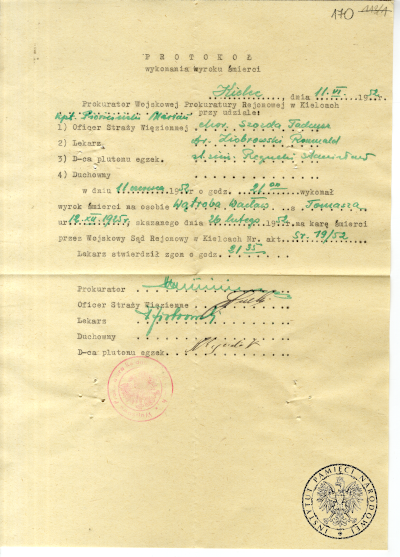 170
P R O T O K O Ł
wykonania wyroku śmierci
Kielce, dnia 11.VI. 1952 r.
Prokurator Wojskowej Prokuratury Rejonowej w Kielcach
kpt. Marian przy udziale:
1) Oficer Straży Więziennej chor. Tadeusz
2) Lekarz dr. Ziobrowski Romuald
3) D-ca plutonu egzek.
4) Duchowny
w dniu 11 czerwca 1952 r o godz. 21 00 wykonał
wyrok śmierci na osobie Wątroba Wacław s. Tomasza
ur. 12.XII.1925 r. skazanego dnia 26 lutego 1952 na karę śmierci
przez Wojskowy Sąd Rejonowy w Kielcach Nr. akt. Sr. 19/52
Lekarz stwierdził zgon o godz. 21 35
Prokurator
Oficer Straży Więzienne
Lekarz
Duchowny
D-ca plutonu egzek.
INSTYTUT PAMIĘCI NARODOWEJ